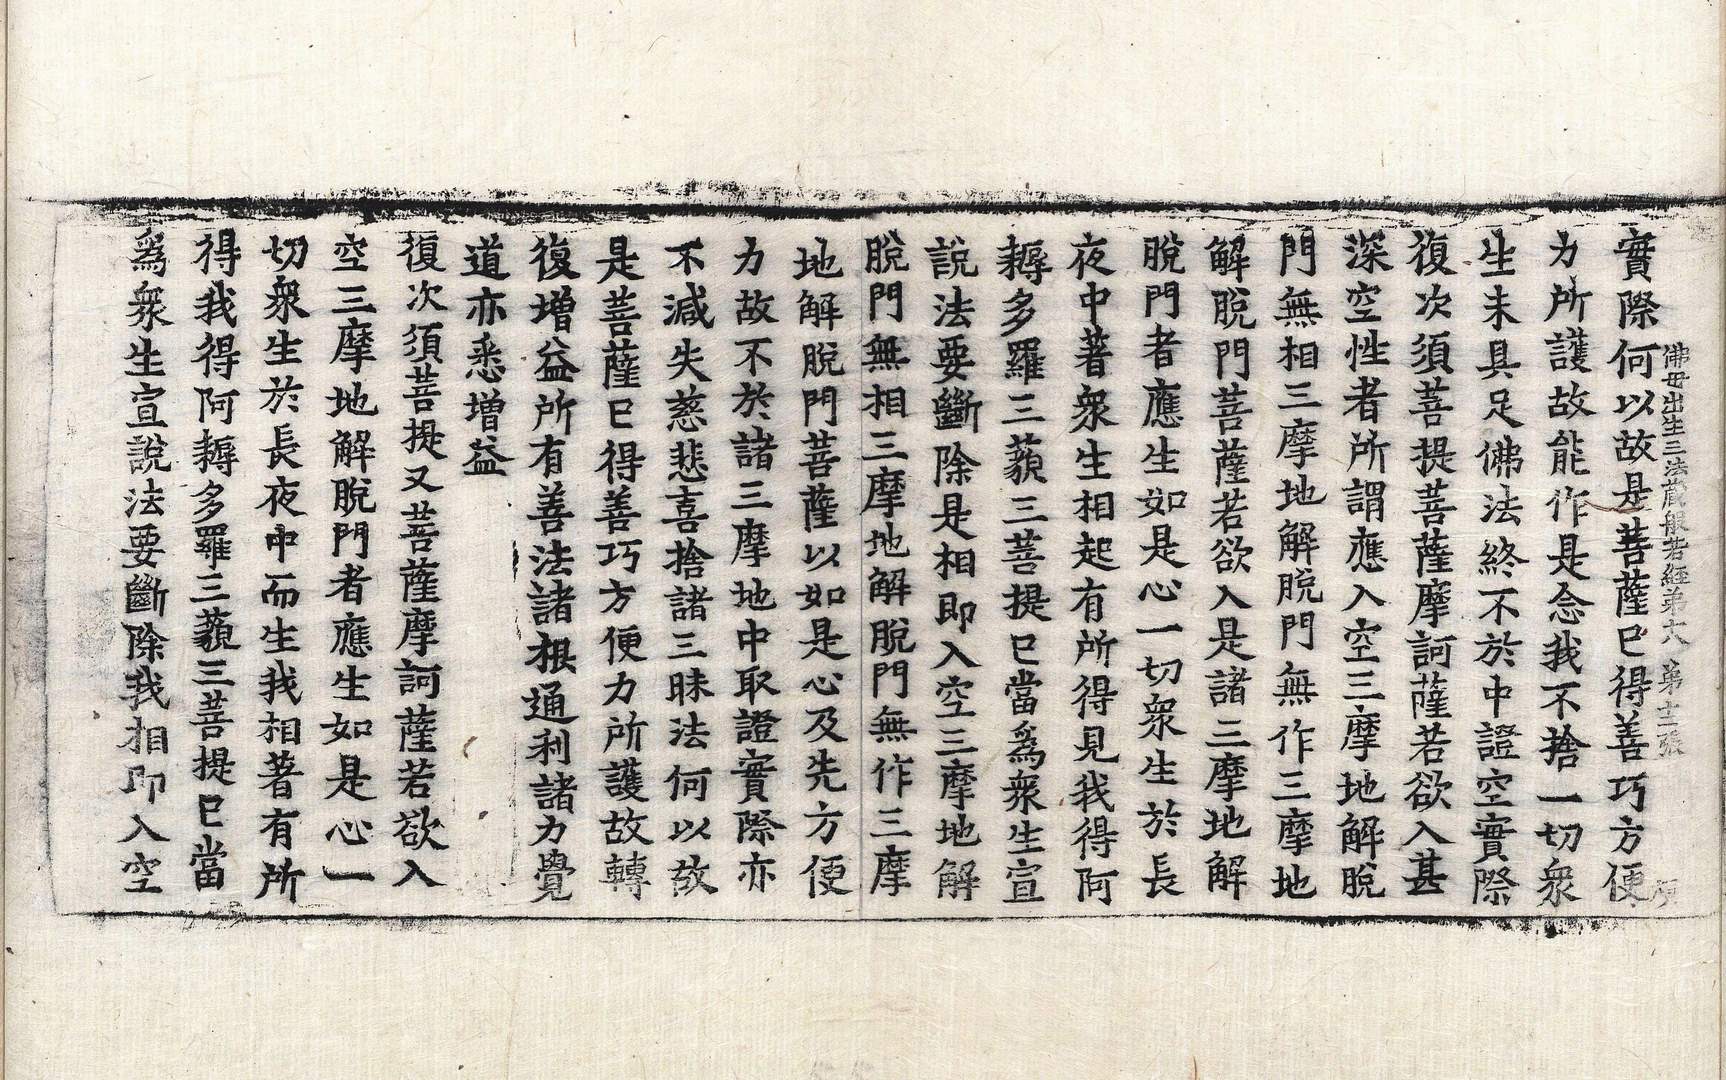 佛母出生三法藏般若經第十六 第十三張
實際何以故是菩薩已得善巧方便
力所護故能作是念我不捨一切衆
生未具足佛法終不於中證空實際
復次須菩提菩薩摩訶薩若欲入甚
深空性者所謂應入空三摩地解脫
門無相三摩地解脫門無作三摩地
解脫門菩薩若欲入是諸三摩地解
脫門者應生如是心一切衆生於長
夜中著衆生相起有所得見我得阿
耨多羅三藐三菩提已當爲衆生宣
說法要斷除是相即入空三摩地解
脫門無相三摩地解脫門無作三摩
地解脫門菩薩以如是心及先方便
力故不於諸三摩地中取證實際亦
不減失慈悲喜捨諸三昧法何以故
是菩薩已得善巧方便力所護故轉
復增益所有善法諸根通利諸力覺
道亦悉增益
復次須菩提又菩薩摩訶薩若欲入
空三摩地解脫門者應生如是心一
切衆生於長夜中而生我相著有所
得我得阿耨多羅三藐三菩提已當
爲衆生宣說法要斷除我相即入空